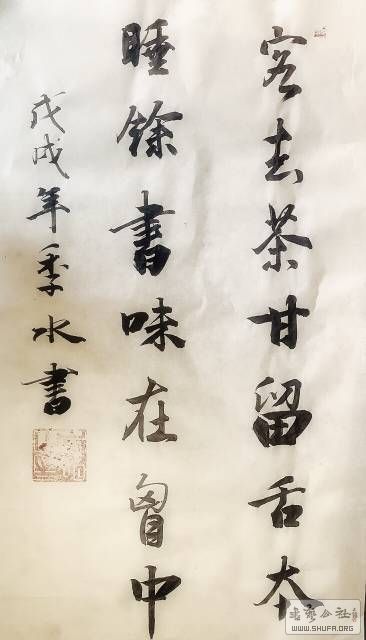 客去茶甘留舌本
睡餘書味在胷中
戊戌年季水書
書藝公社
WWW.SHUFA.ORG